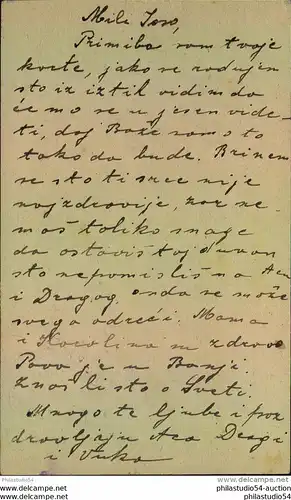 Mili Joso,
Primiba sam tvoje
karte, jako se radujem
sto iz iztih vidim da
će mo se u jesen vide-
ti, daj Bože samo sto
tako da bude. Brinem
se sto ti srce nije
najzdravije, zar ne
maš toliko snage
da ostaviš taj duvan
sto nepomisliš na Acu
i Dragog, onda se može
svega odreći. Mama
i Karolina su zdravo
je u Banji.
Znaš li sto o Sveti.
Mnogo te ljube i poz
dravljaju Aca Dragi
i Vuka
philastudio54.delcampe.net
philastudio54-auction
philastudio54-auction